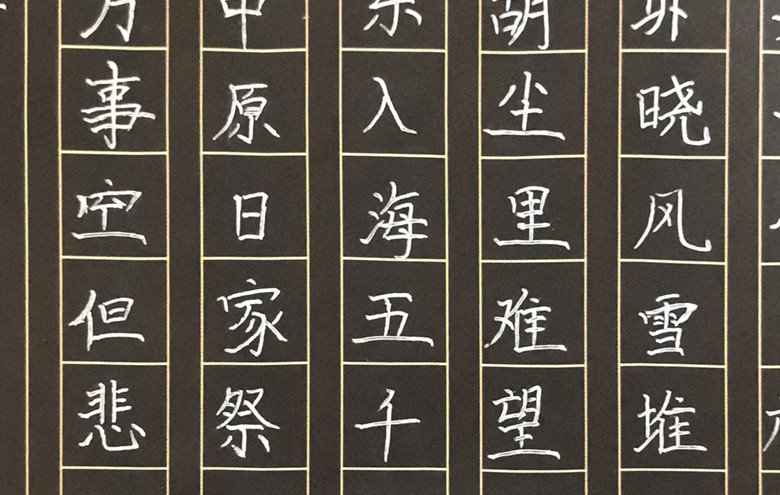 万事空但悲
中原日家祭
东入海五千
胡尘里难望
晓风雪堆